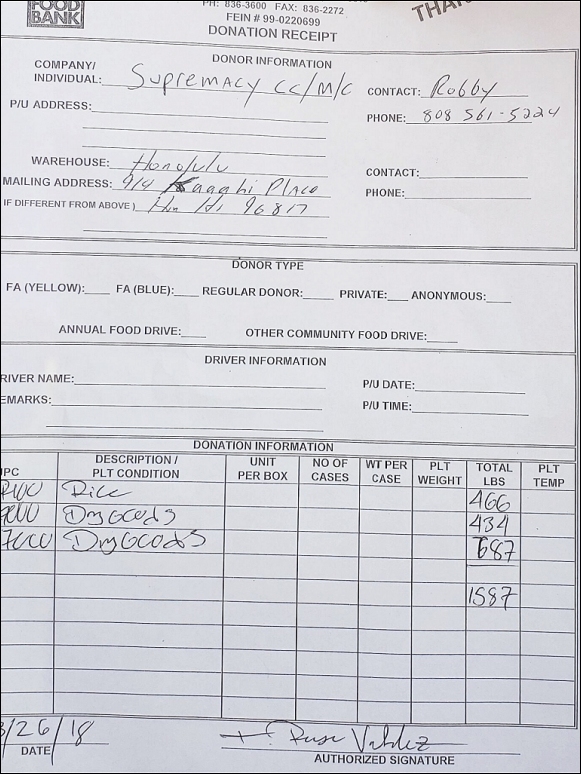 FOOD
BANK
PH: 836-3600 FAX: 836-2272
FEIN # 99-0220699
DONATION RECEIPT
DONOR INFORMATION
COMPANY/
INDIVIDUAL: Supremacy CC/M/C CONTACT: Robby
P/U ADDRESS: PHONE: 808 561-5224
WAREHOUSE: Honolulu CONTACT:
MAILING ADDRESS: 914 Place PHONE:
IF DIFFERENT FROM ABOVE) Hon HI 96817
DONOR TYPE
FA (YELLOW): FA (BLUE): REGULAR DONOR: PRIVATE: ANONYMOUS:
ANNUAL FOOD DRIVE: OTHER COMMUNITY FOOD DRIVE:
DRIVER INFORMATION
RIVER NAME: P/U DATE:
EMARKS: P/U TIME:
DONATION INFORMATION
UPC DESCRIPTION / PLT CONDITION UNIT PER BOX NO OF CASES WT PER CASE PLT WEIGHT TOTAL LBS PLT TEMP
Rice 466
Dry Goods 434
7000 Dry Goods 687
1587
/26/18
DATE Valdez
AUTHORIZED SIGNATURE